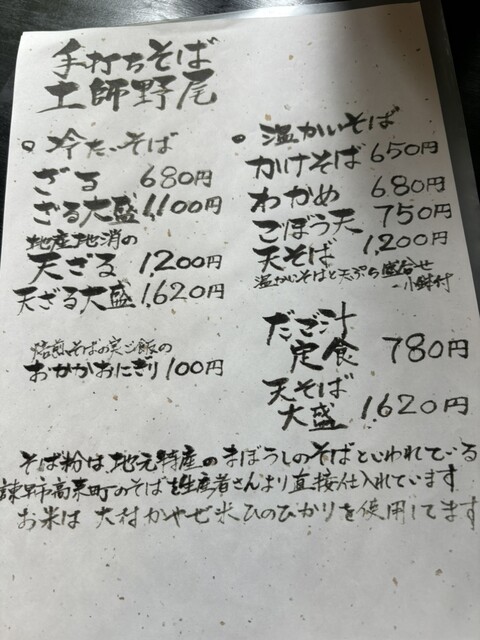 手打ちそば
土師野尾
○ 冷たいそば
ざる 680円
ざる大盛 1,100円
地産地消の
天ざる 1,200円
天ざる大盛 1,620円
焙煎そばの実ご飯の
おかかおにぎり 100円
○ 温かいそば
かけそば 650円
わかめ 680円
ごぼう天 750円
天そば 1,200円
温かいそばと天ぷら盛合せ
小鉢付
だご汁
定食 780円
天そば
大盛 1,620円
そば粉は地元特産のまぼろしのそばといわれている
諫早市高来町のそばを生産者さんより直接仕入れています
お米は 大村かやぜ米ひのひかりを使用してます